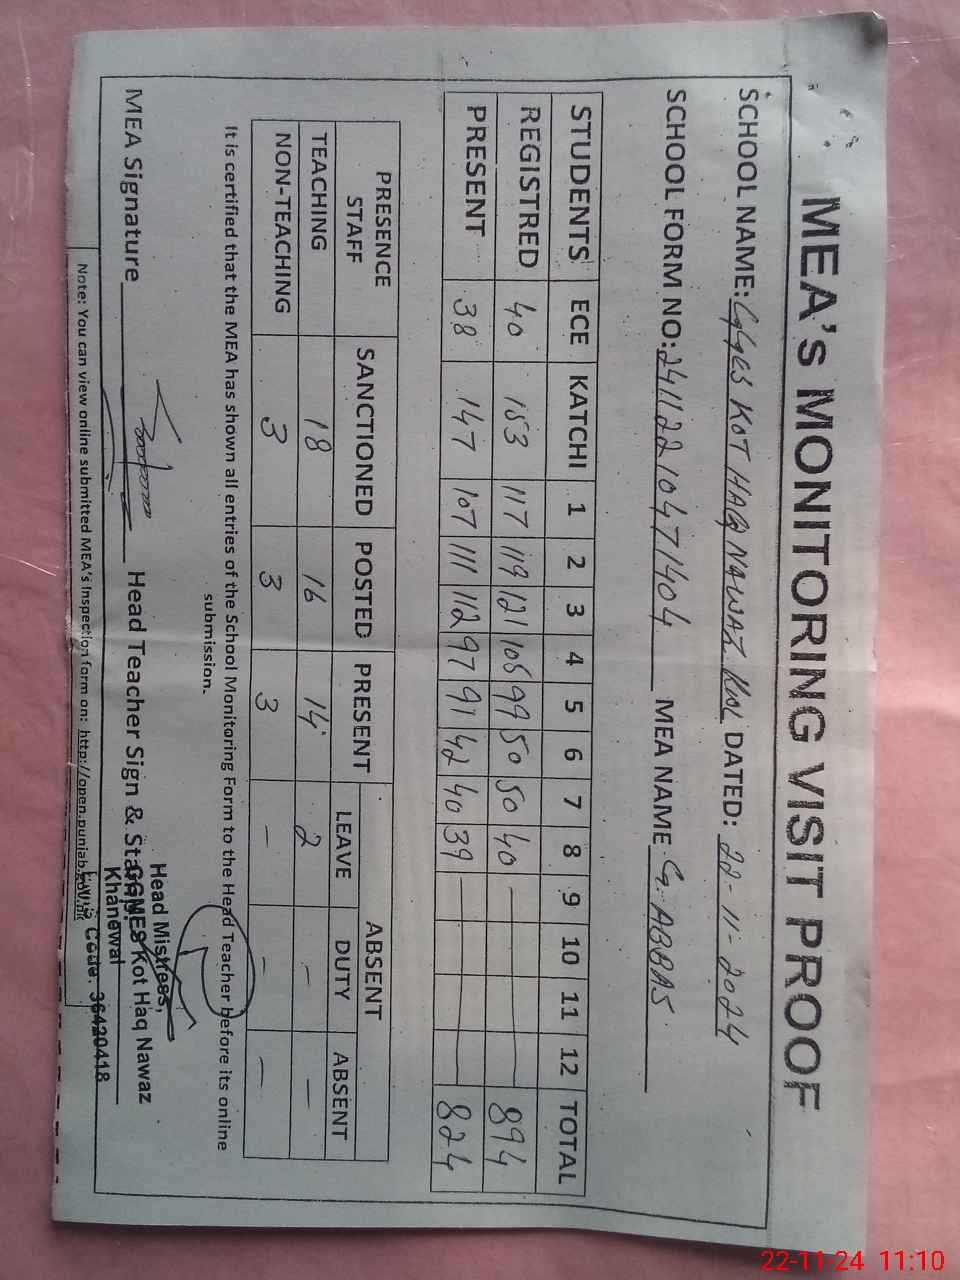 MEA's MONITORING VISIT PROOF
SCHOOL NAME: GGES KOT HAQ NAWAZ KWL DATED: 22-11-2024
SCHOOL FORM NO: 24112210471404 MEA NAME G. ABBAS
STUDENTS ECE KATCHI 1 2 3 4 5 6 7 8 9 10 11 12 TOTAL
REGISTRED 40 153 117 119 121 105 99 50 50 40 — 894
PRESENT 38 147 107 111 112 97 91 42 40 39 — 824
PRESENCE STAFF SANCTIONED POSTED PRESENT ABSENT
LEAVE DUTY ABSENT
TEACHING 18 16 14 2 — —
NON-TEACHING 3 3 3 — — —
It is certified that the MEA has shown all entries of the School Monitoring Form to the Head Teacher before its online
submission.
MEA Signature Head Teacher Sign & Stamp:
Head Mistress,
Kot Haq Nawaz
Khanewal
Code: 36420418
Note: You can view online submitted MEA's Inspection form on: http://open.punjab.gov.pk
22-11-24 11:10